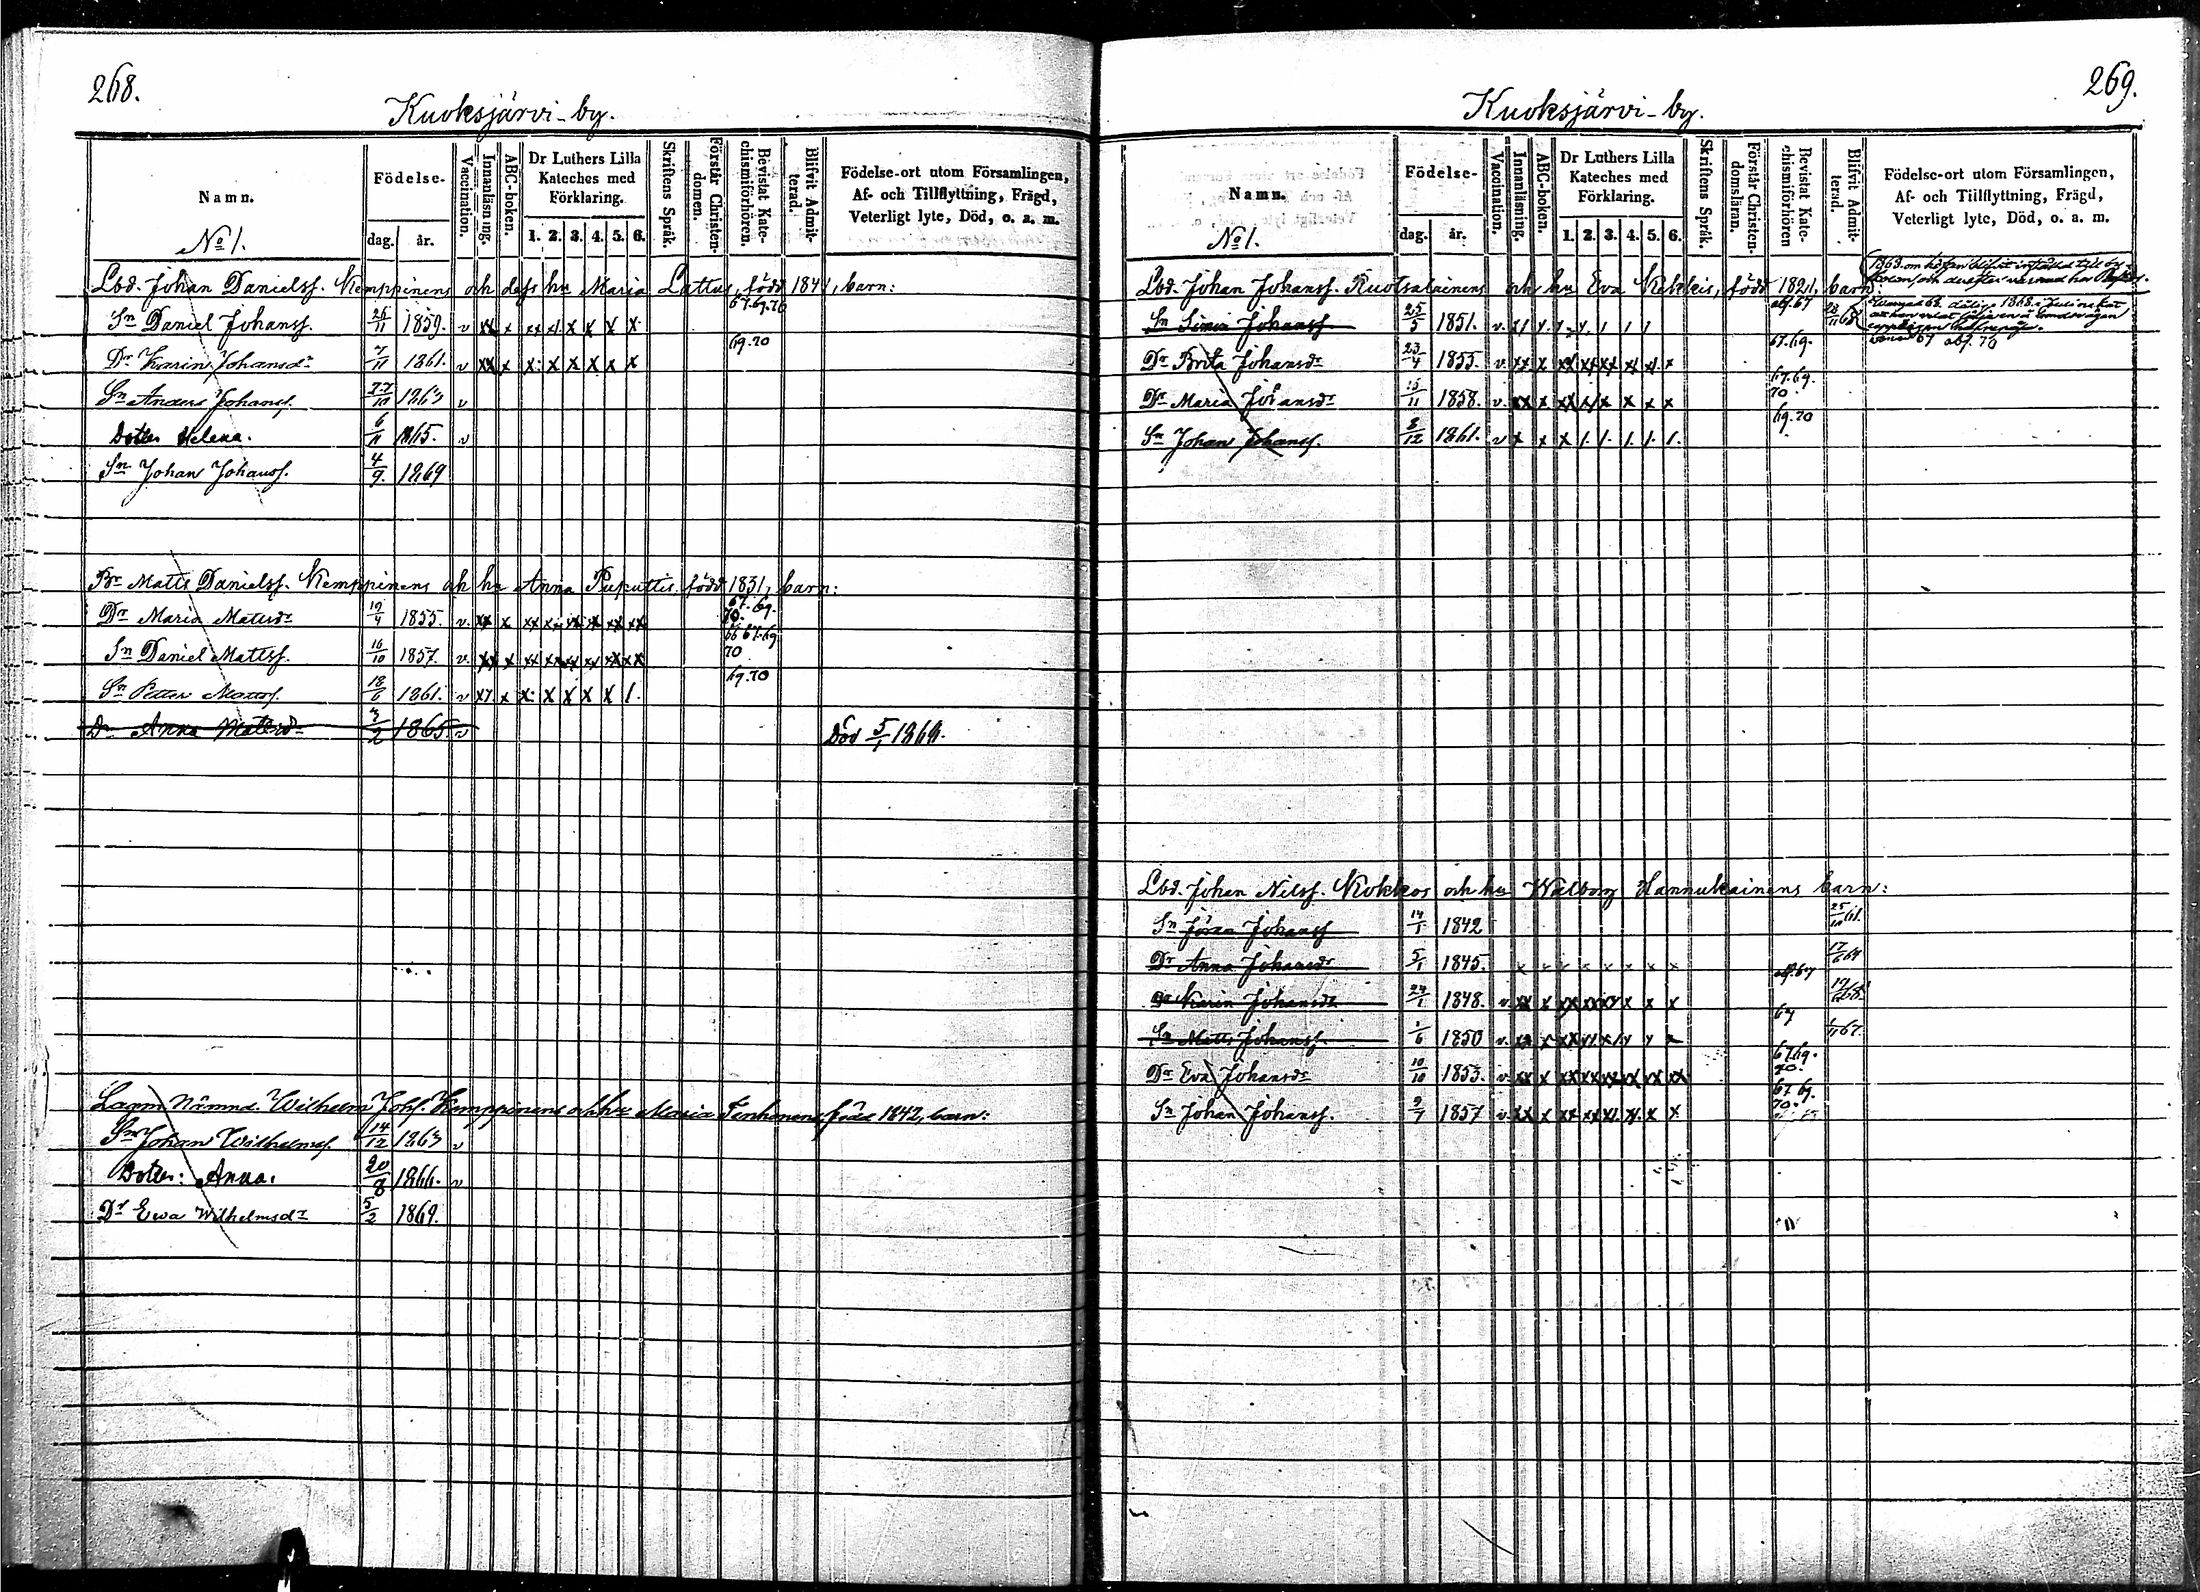 268.
Kuoksjärvi-by.
Namn.
No 1.
Födelse-
dag. år.
Vaccination.
Innanläsning.
ABC-boken.
Dr Luthers Lilla
Kateches med
Förklaring.
1. 2. 3. 4. 5. 6.
Skriftens Språk.
Förstår Christen-
domen.
Bevistat Kate-
chismiförhören.
Blifvit Admit-
terad.
Födelse-ort utom Församlingen,
Af- och Tillflyttning, Frägd,
Veterligt lyte, Död, o. a. m.
Lbd. Johan Danielss. Kemppinens och dess hu Maria Lattus, född 1841, barn:
Sn Daniel Johanss. 26/11 1859. v xx x xx x/ x x x x 67.69.70
Dr Karin Johansdr 7/11 1861. v xx x x: x x x x x 69.70
Sn Anders Johanss. 27/10 1863 v
Dotter Helena. 6/11 1865. v
Sn Johan Johanss. 4/9. 1869
Br Matts Danielss. Kemppinens och hu Anna Puputtis född 1831, barn:
Dr Maria Mattsdr 19/4 1855. v. xx x xx x. xx xx xx xx 67.69. 70.
Sn Daniel Mattss. 16/10 1857. v. xx x xx xx xx xx xx xx 66 67.69 70
Sn Petter Mattss. 18/6 1861. v x7. x x: x x x x 1. 69.70
Dr Anna Mattsdr 7/2 1865 v Död 5/1 1868.
Lagm Nämnd. Wilhelm Johss. Kemppinens och hu Maria Tenhonens född 1842, barn:
Sn Johan Wilhelmss. 14/12 1863 v
Dotter: Anna. 20/8 1866. v
Dr Ewa Wilhelmsdr 5/2 1869.
269.
Kuoksjärvi-by.
Namn.
No 1.
Födelse-
dag. år.
Vaccination.
Innanläsning.
ABC-boken.
Dr Luthers Lilla
Kateches med
Förklaring.
1. 2. 3. 4. 5. 6.
Skriftens Språk.
Förstår Christen-
domsläran.
Bevistat Kate-
chismiförhören
Blifvit Admit-
terad.
Födelse-ort utom Församlingen,
Af- och Tillflyttning, Frägd,
Veterligt lyte, Död, o. a. m.
Lbd. Johan Johanss. Ruotsalainens och hu Eva Kekkis, född 1821, barn:
Sn Simon Johanss 25/5 1851. v. abs. 67
Dr Brita Johansdr 23/4 1855. v. xx x xx xx xx xx x/. x 67.69.
Dr Maria Johansdr 15/11 1858. v. xx x xx x/ x x x x 67.69. 70.
Sn Johan Johanss. 8/12 1861. v x x x 1. 1. 1. 1. 1. 69.70
Lbd. Johan Nilss. Kokkos och hu Walborg Hannukainens barn:
Sn Jöran Johanss 14/1 1842 25/10 61.
Dr Anna Johansdr 5/1 1845. x x x x x x x x 17/6 64
Dr Karin Johansdr 24/1 1848. v. xx x xx xx xx x x x abs. 67
Sn Matts Johanss. 1/6 1850 v. 67 1/11 67.
Dr Eva Johansdr 10/10 1853. v. xx x xx xx xx xx xx xx 67.69. 70.
Sn Johan Johanss. 9/7 1857 v. xx x xx xx x/. x/. x x 67 69. 70.